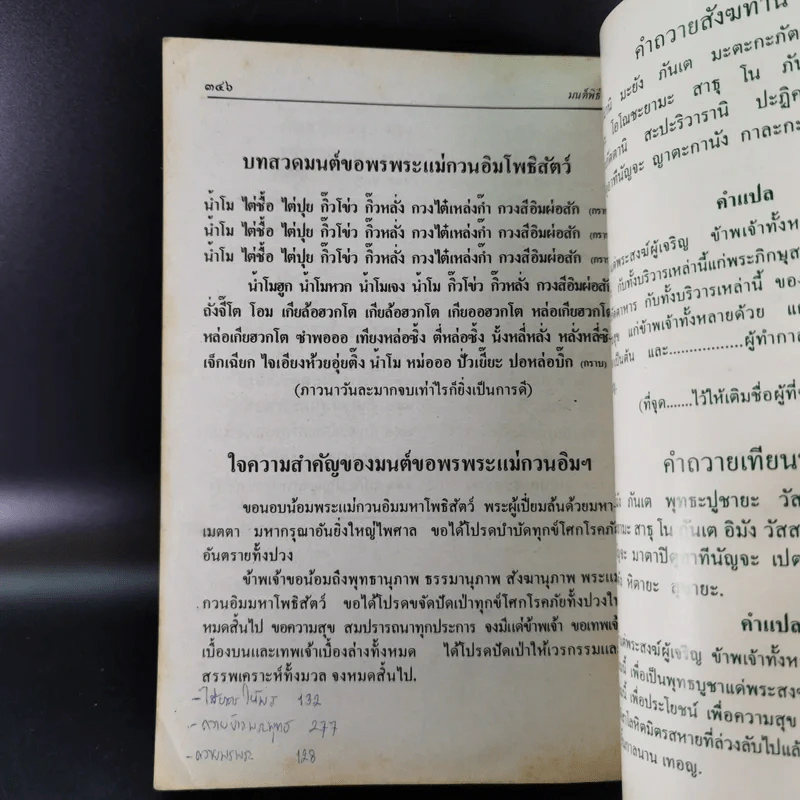 ๓๔๖
มนต์พิธี
บทสวดมนต์ขอพรพระแม่กวนอิมโพธิสัตว์
น้ำโม ไต่ชื้อ ไต่ปุย กิ๊วโข่ว กิ๊วหลั่ง กวงไต๋เหล่งก๊ำ กวงสีอิมผ่อสัก (กราบ
น้ำโม ไต่ชื้อ ไต่ปุย กิ๊วโข่ว กิ๊วหลั่ง กวงไต๋เหล่งก๊ำ กวงสีอิมผ่อสัก (กราบ
น้ำโม ไต่ชื้อ ไต่ปุย กิ๊วโข่ว กิ๊วหลั่ง กวงไต๋เหล่งก๊ำ กวงสีอิมผ่อสัก (กราบ
น้ำโมฮูก น้ำโมหวก น้ำโมเจง น้ำโม กิ๊วโข่ว กิ๊วหลั่ง กวงสีอิมผ่อสัก
ถั่งจี้โต โอม เกียล้อฮวกโต เกียล้อฮวกโต เกียออฮวกโต หล่อเกียฮวกโต
หล่อเกียฮวกโต ซำพอออ เทียงหล่อซิ้ง ตี่หล่อซิ้ง นั้งหลี่หลั่ง หลั่งหลี่ซิ
เจ็กเฉียก ไจเอียงห้วยอุ่ยติ๊ง น้ำโม หม่อออ ปั่วเยี๊ยะ ปอหล่อบิ๊ก (กราบ)
(ภาวนาวันละมากจบเท่าไรก็ยิ่งเป็นการดี)
ใจความสำคัญของมนต์ขอพรพระแม่กวนอิมฯ
ขอนอบน้อมพระแม่กวนอิมมหาโพธิสัตว์ พระผู้เปี่ยมล้นด้วยมหา
เมตตา มหากรุณาอันยิ่งใหญ่ไพศาล ขอได้โปรดบำบัดทุกข์โศกโรคภัย
อันตรายทั้งปวง
ข้าพเจ้าขอน้อมถึงพุทธานุภาพ ธรรมานุภาพ สังฆานุภาพ พระแม่
กวนอิมมหาโพธิสัตว์ ขอได้โปรดขจัดปัดเป่าทุกข์โศกโรคภัยทั้งปวงให้
หมดสิ้นไป ขอความสุข สมปรารถนาทุกประการ จงมีแด่ข้าพเจ้า ขอเทพเจ้า
เบื้องบนและเทพเจ้าเบื้องล่างทั้งหมด ได้โปรดปัดเป่าให้เวรกรรมและ
สรรพเคราะห์ทั้งมวล จงหมดสิ้นไป.
132
277
128
คำถวายสังฆทาน
มะยัง ภันเต มะตะกะภัต
โอโณชะยามะ สาธุ โน ภัน
สะปะริวารานิ ปะฏิค
ญาตะกานัง กาละกะ
คำแปล
แด่พระสงฆ์ผู้เจริญ ข้าพเจ้าทั้งห
กับทั้งบริวารเหล่านี้แก่พระภิกษุส
กับทั้งบริวารเหล่านี้ ของ
แก่ข้าพเจ้าทั้งหลายด้วย แก่
เป็นต้น และ.................ผู้ทำกาล
(ที่จุด.......ไว้ให้เติมชื่อผู้ที่
คำถวายเทียนพ
ภันเต พุทธะปูชายะ วัส
สาธุ โน ภันเต อิมัง วัสส
มาตาปิตุอาทีนัญจะ เปต
หิตายะ สุขายะ.
คำแปล
แด่พระสงฆ์ผู้เจริญ ข้าพเจ้าทั้งห
เพื่อเป็นพุทธบูชาแด่พระสง
เพื่อประโยชน์ เพื่อความสุข
โลหิตมิตรสหายที่ล่วงลับไปแล้
กาลนาน เทอญ.